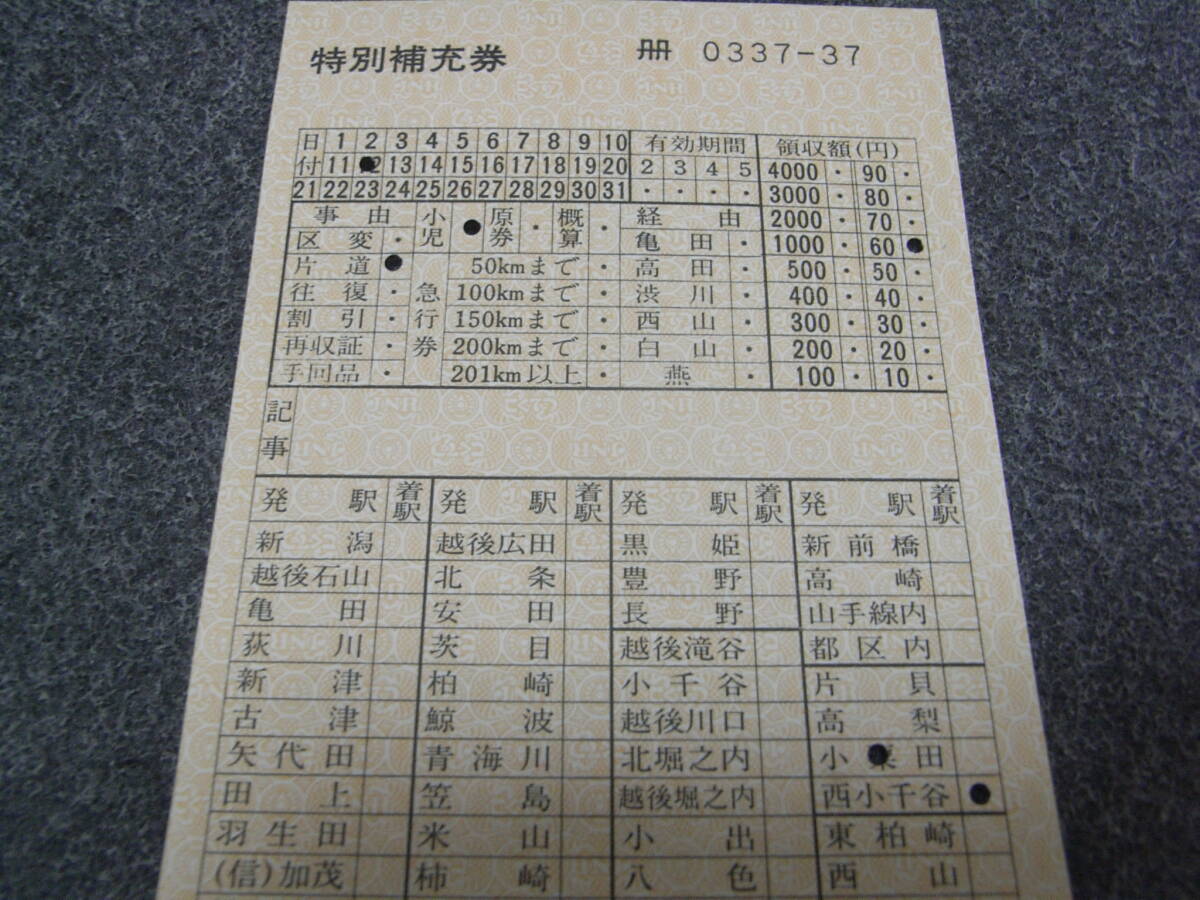 特別補充券 冊 0337-37
日 1 2 3 4 5 6 7 8 9 10 有効期間 領収額(円)
付 11 12 13 14 15 16 17 18 19 20 2 3 4 5 4000 ・ 90 ・
21 22 23 24 25 26 27 28 29 30 31 ・ ・ ・ ・ 3000 ・ 80 ・
事由 小児 原券 ・ 概算 ・ 経由 2000 ・ 70 ・
区変 ・ 亀田 ・ 1000 ・ 60
片道 50kmまで ・ 高田 ・ 500 ・ 50 ・
往復 ・ 急 100kmまで ・ 渋川 ・ 400 ・ 40 ・
割引 ・ 行 150kmまで ・ 西山 ・ 300 ・ 30 ・
再収証 ・ 券 200kmまで ・ 白山 ・ 200 ・ 20 ・
手回品 ・ 201km以上 ・ 燕 ・ 100 ・ 10 ・
記事
発駅 着駅 発駅 着駅 発駅 着駅 発駅 着駅
新潟 越後広田 黒姫 新前橋
越後石山 北条 豊野 高崎
亀田 安田 長野 山手線内
荻川 茨目 越後滝谷 都区内
新津 柏崎 小千谷 片貝
古津 鯨波 越後川口 高梨
矢代田 青海川 北堀之内 小粟田
田上 笠島 越後堀之内 西小千谷
羽生田 米山 小出 東柏崎
(信)加茂 柿崎 八色 西山